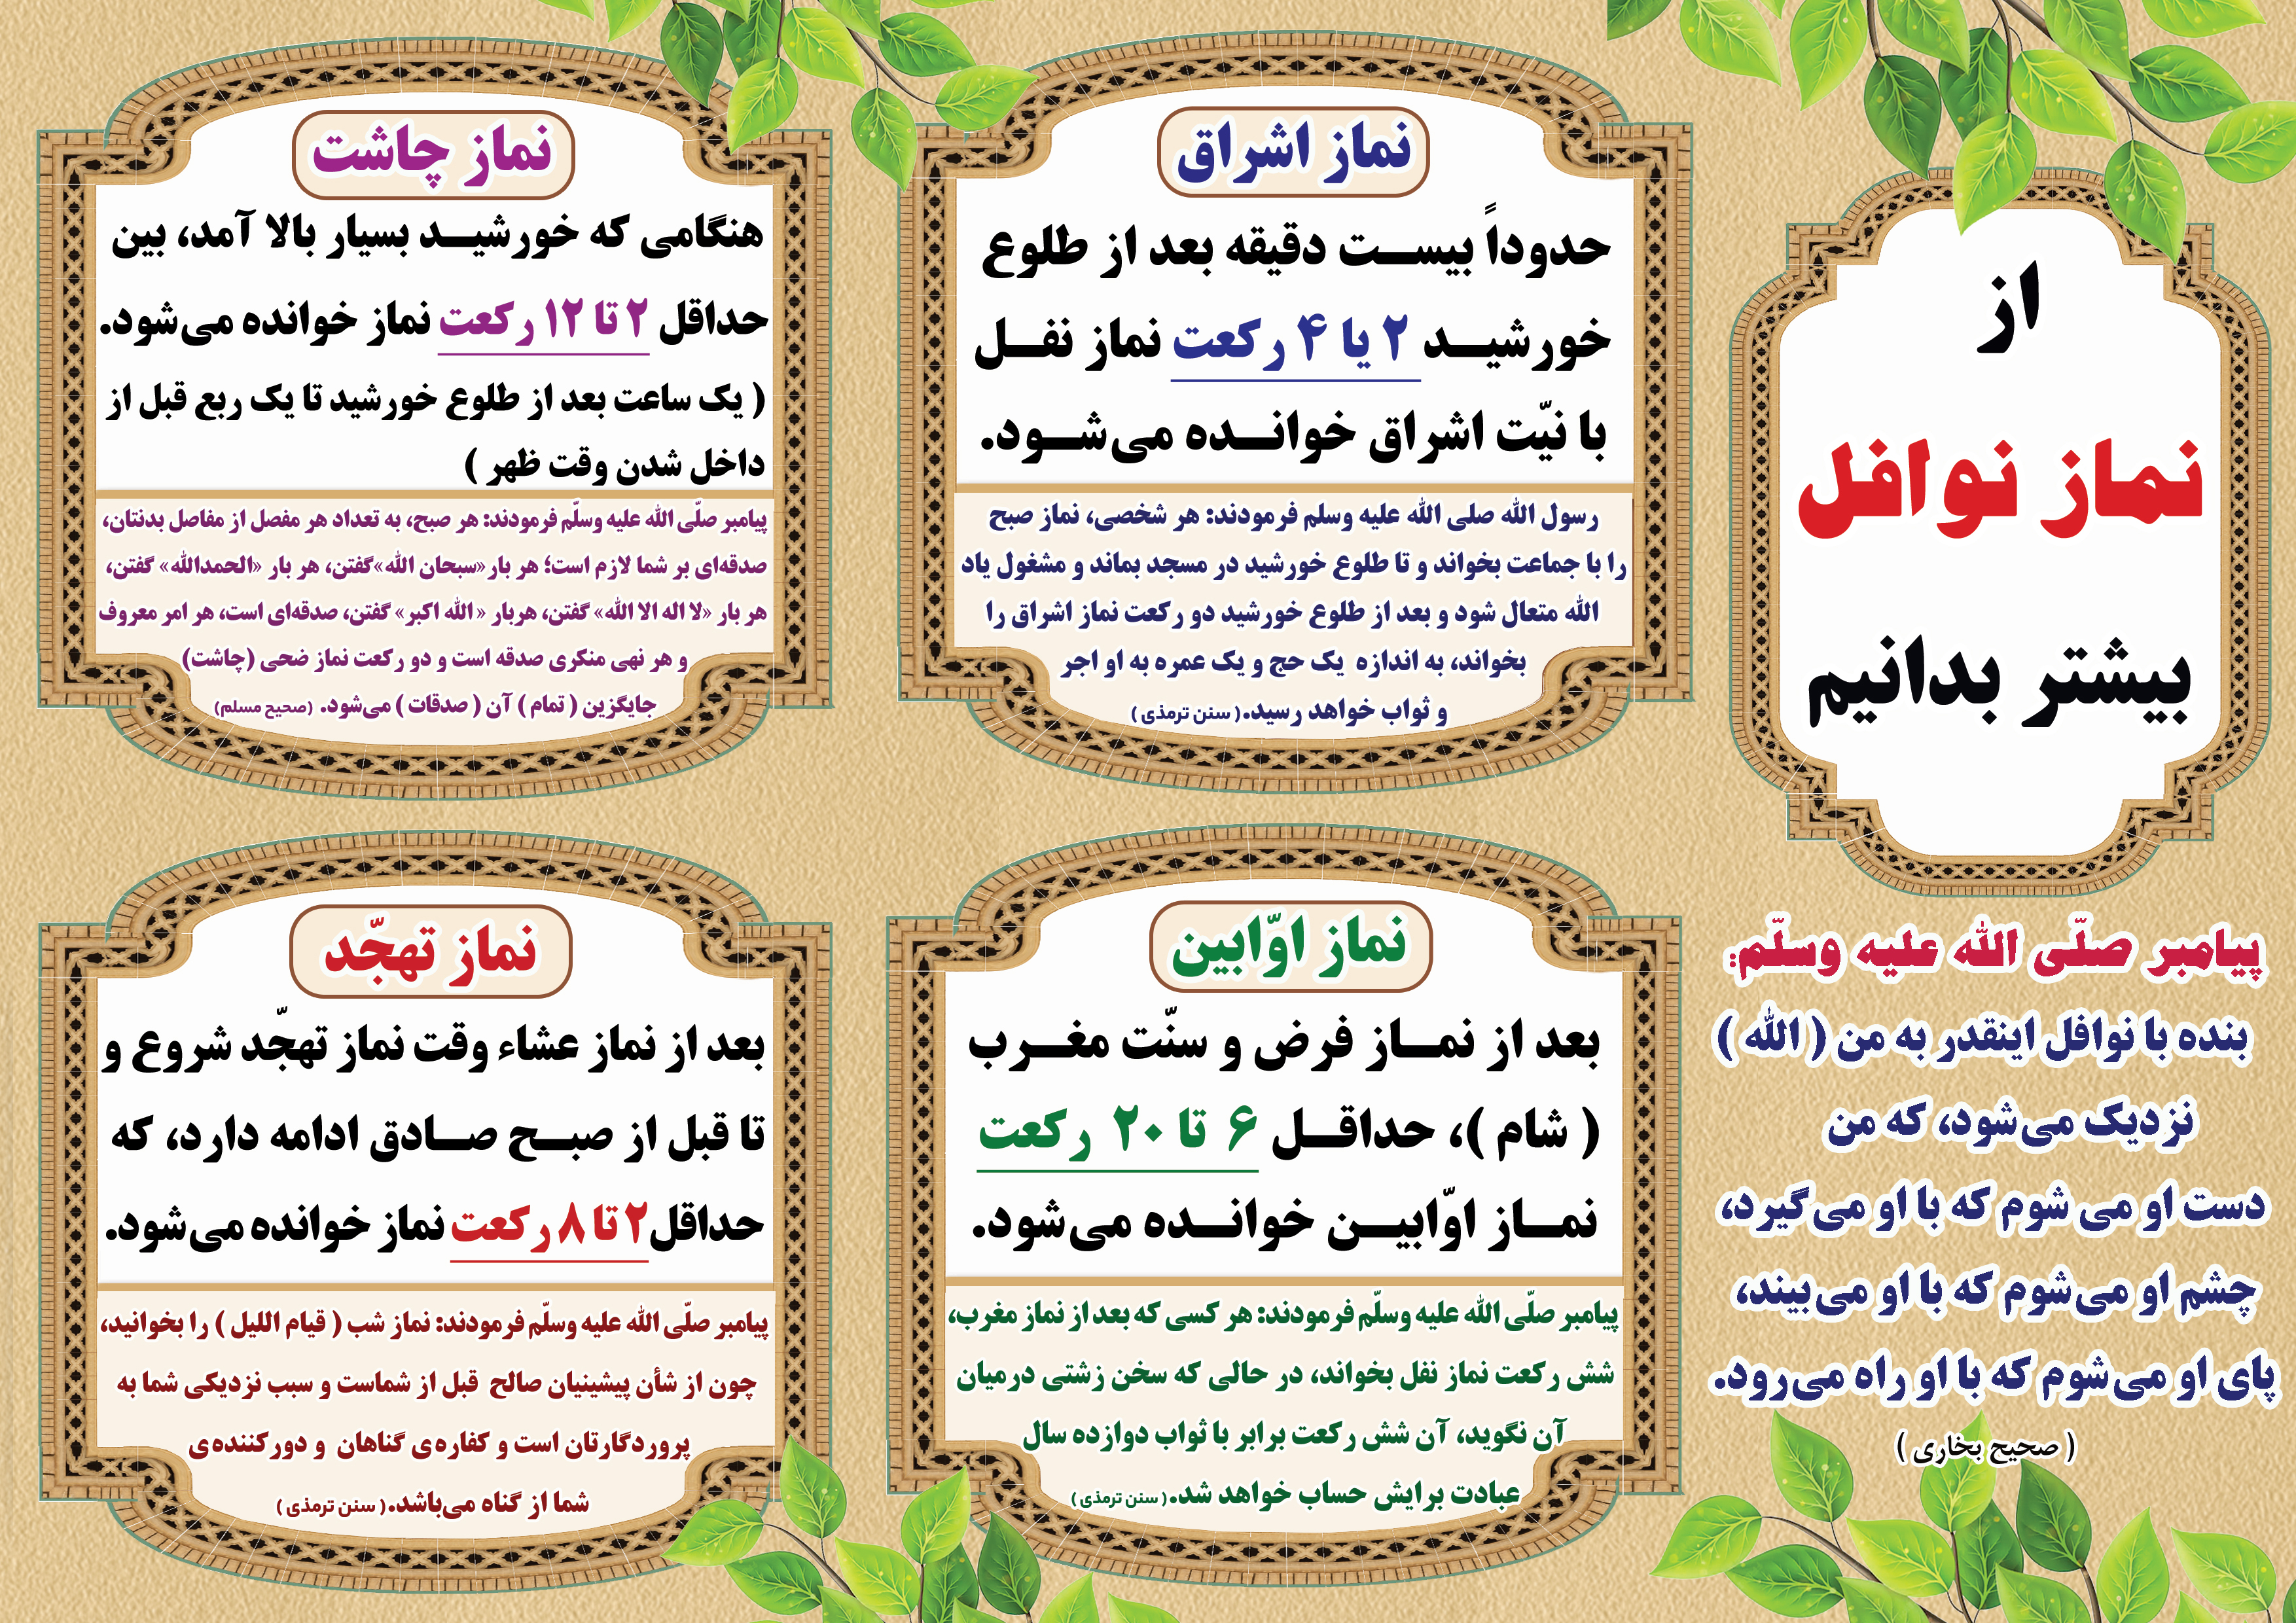 از
نماز نوافل
بیشتر بدانیم
پیامبر صلّی الله علیه وسلّم:
بنده با نوافل اینقدر به من ( الله )
نزدیک می‌شود، که من
دست او می شوم که با او می‌گیرد،
چشم او می‌شوم که با او می‌بیند،
پای او می‌شوم که با او راه می‌رود.
( صحیح بخاری )
نماز اشراق
حدوداً بیست دقیقه بعد از طلوع
خورشید ۲ یا ۴ رکعت نماز نفل
با نیّت اشراق خوانده می‌شود.
رسول الله صلی الله علیه وسلم فرمودند: هر شخصی، نماز صبح
را با جماعت بخواند و تا طلوع خورشید در مسجد بماند و مشغول یاد
الله متعال شود و بعد از طلوع خورشید دو رکعت نماز اشراق را
بخواند، به اندازه یک حج و یک عمره به او اجر
و ثواب خواهد رسید.( سنن ترمذی )
نماز چاشت
هنگامی که خورشید بسیار بالا آمد، بین
حداقل ۲ تا ۱۲ رکعت نماز خوانده می‌شود.
( یک ساعت بعد از طلوع خورشید تا یک ربع قبل از
داخل شدن وقت ظهر )
پیامبر صلّی الله علیه وسلّم فرمودند: هر صبح، به تعداد هر مفصل از مفاصل بدنتان،
صدقه‌ای بر شما لازم است؛ هر بار«سبحان الله»گفتن، هر بار «الحمدالله» گفتن،
هر بار «لا اله الا الله» گفتن، هربار « الله اکبر» گفتن، صدقه‌ای است، هر امر معروف
و هر نهی منکری صدقه است و دو رکعت نماز ضحی (چاشت)
جایگزین ( تمام ) آن ( صدقات ) می‌شود. (صحیح مسلم)
نماز اوّابین
بعد از نماز فرض و سنّت مغرب
( شام )، حداقل ۶ تا ۲۰ رکعت
نماز اوّابین خوانده می‌شود.
پیامبر صلّی الله علیه وسلّم فرمودند: هر کسی که بعد از نماز مغرب،
شش رکعت نماز نفل بخواند، در حالی که سخن زشتی درمیان
آن نگوید، آن شش رکعت برابر با ثواب دوازده سال
عبادت برایش حساب خواهد شد.( سنن ترمذی )
نماز تهجّد
بعد از نماز عشاء وقت نماز تهجّد شروع و
تا قبل از صبح صادق ادامه دارد، که
حداقل۲ تا ۸ رکعت نماز خوانده می‌شود.
پیامبر صلّی الله علیه وسلّم فرمودند: نماز شب ( قیام اللیل ) را بخوانید،
چون از شأن پیشینیان صالح قبل از شماست و سبب نزدیکی شما به
پروردگارتان است و کفاره‌ی گناهان و دورکننده‌ی
شما از گناه می‌باشد.( سنن ترمذی )